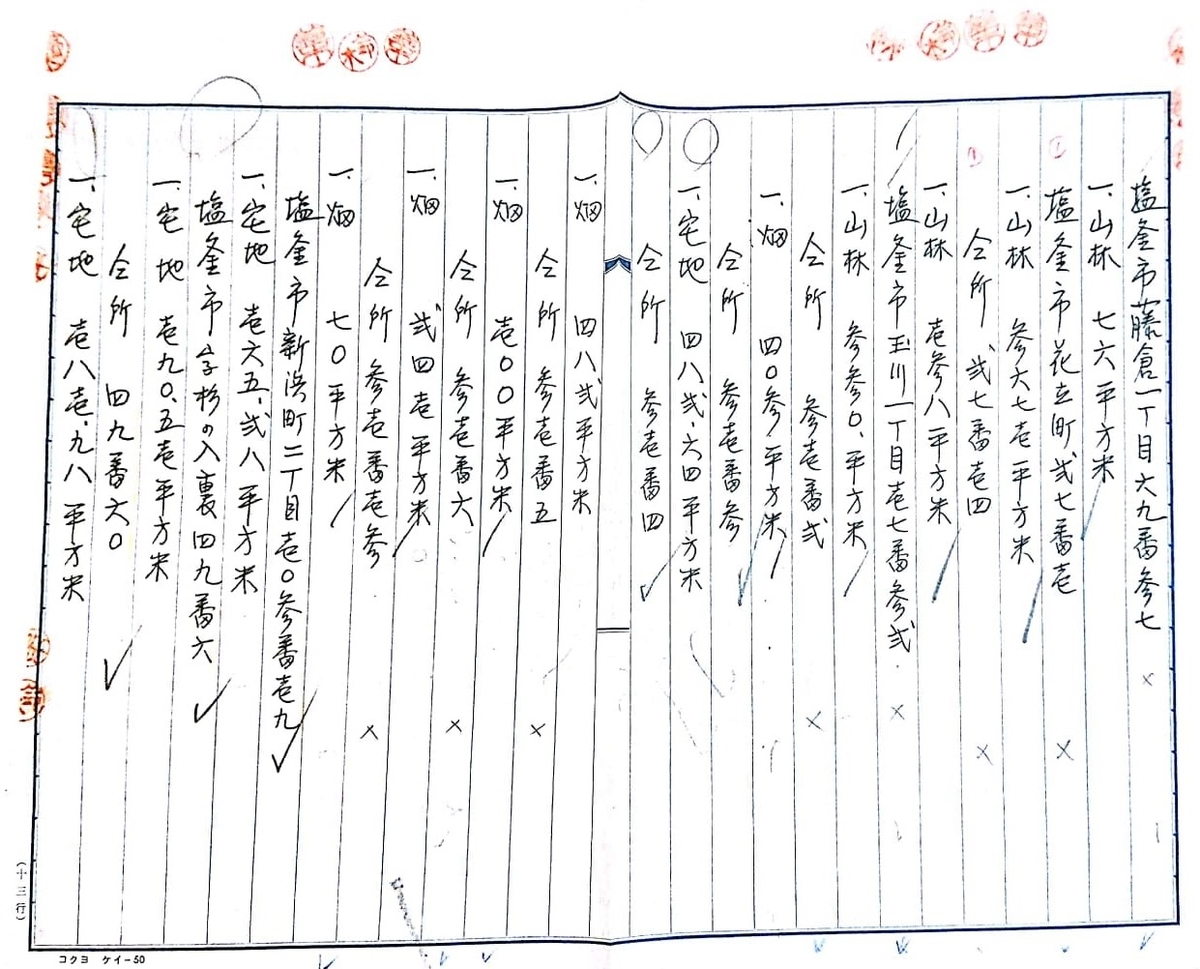 塩釜市藤倉一丁目六九番参七
一、山林　七六平方米
塩釜市花立町弐七番壱
一、山林　参六七壱平方米
仝所　弐七番壱四
一、山林　壱参八平方米
塩釜市玉川一丁目壱七番参弐
一、山林　参参〇、平方米
仝所　参壱番弐
一、畑　四〇参平方米
仝所　参壱番参
一、宅地　四八弐・六四平方米
仝所　参壱番四
一、畑　四八弐平方米
仝所　参壱番五
一、畑　壱〇〇平方米
仝所　参壱番六
一、畑　弐四壱平方米
仝所　参壱番壱参
一、畑　七〇平方米
塩釜市新浜町二丁目壱〇参番壱九
一、宅地　壱六五、弐八平方米
塩釜市字杉の入裏四九番六
一、宅地　壱九〇、五壱平方米
仝所　四九番六〇
一、宅地　壱八壱、九八平方米
(十三行)
コクヨ　ケイ-50